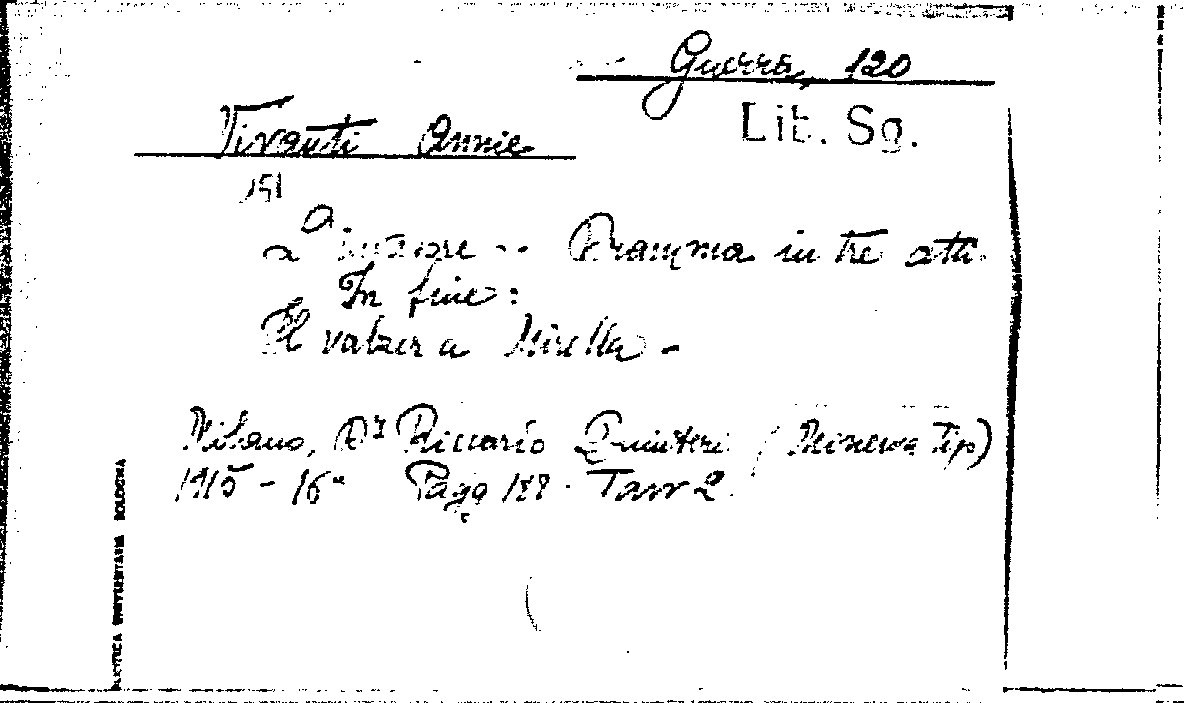 Guerra, 120
Lib. Sg.
Vivanti Annie
151
L'invasore -- Dramma in tre atti.
In fine:
Il valzer a Mirella -
Milano, Dr Riccardo Quinteri (Minerva Tip)
1915 - 16° Pagg 188. Tavv 2.
BIBLIOTECA UNIVERSITARIA BOLOGNA